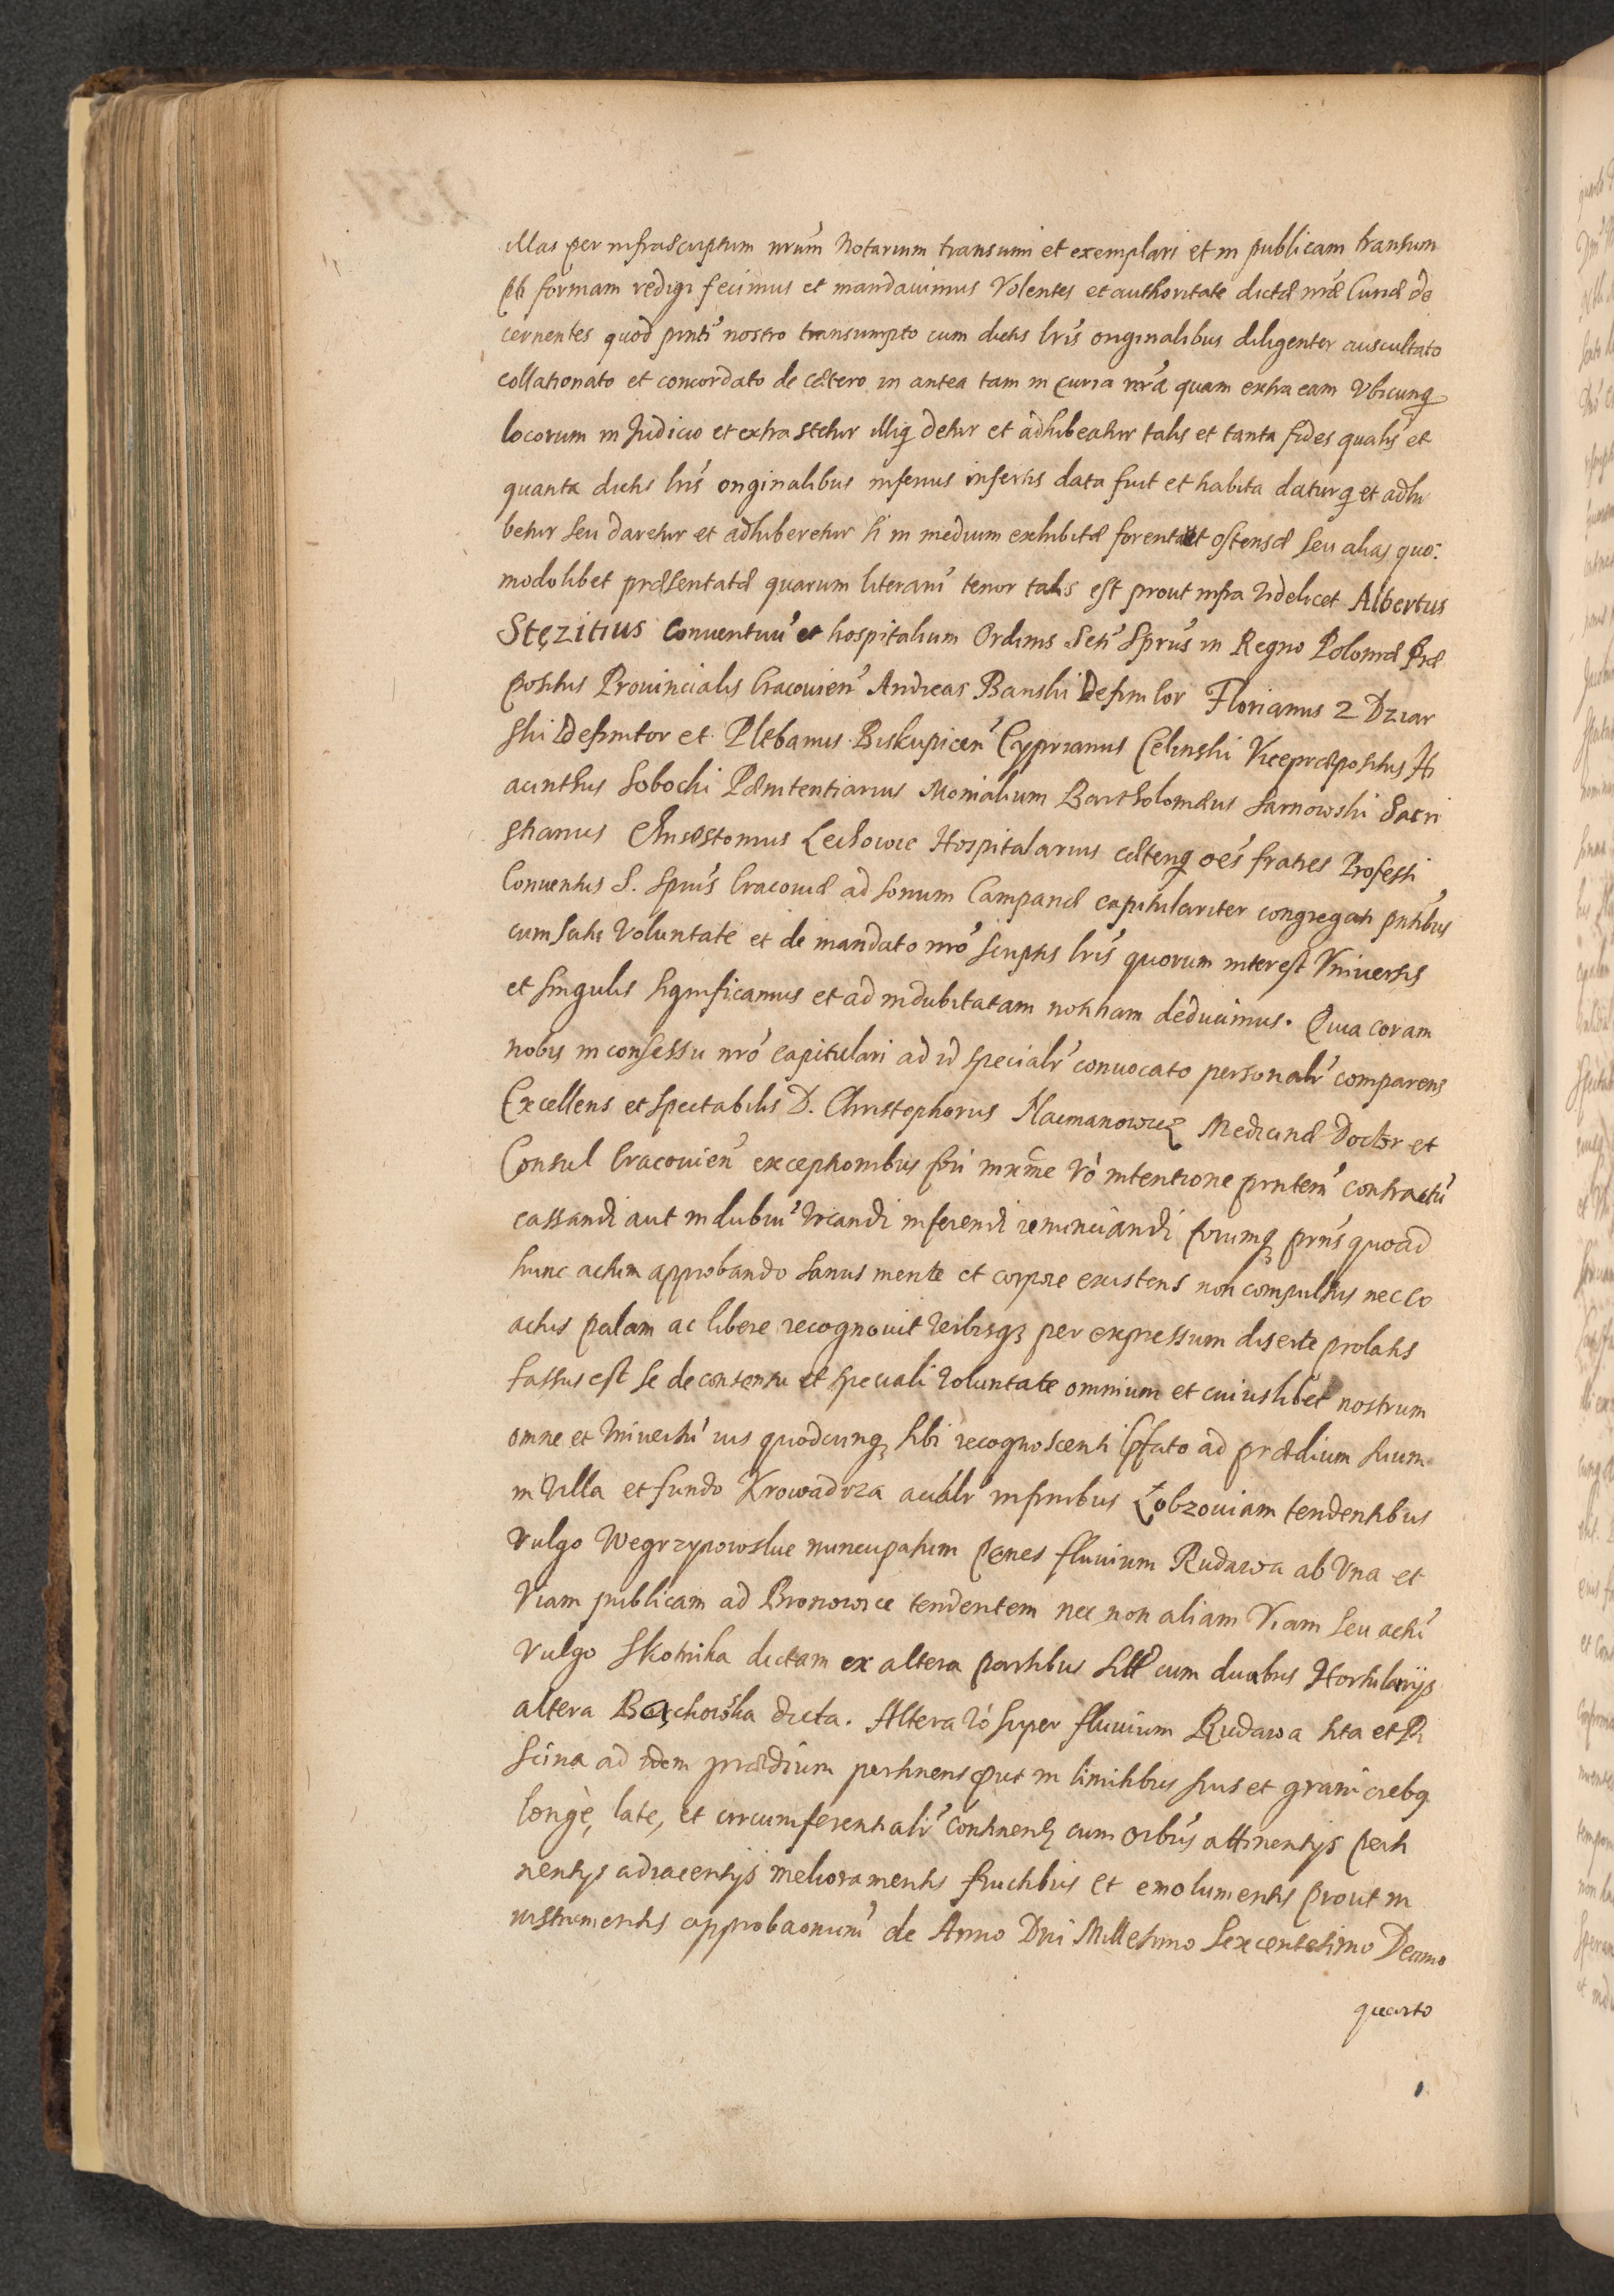 illas per infrascriptum nrũm Notarium transumi et exemplari et in publicam transum
pti formam redigi fecimus et mandauimus Volentes et authoritate dictæ nræ Curiæ de
cernentes quod pnti nostro transumpto cum dictis lris originalibus diligenter auscultato
collationato et concordato de cætero in antea tam in curia nra quam extra eam Vbicunq
locorum in Judicio et extra stetur illiq detur et adhibeatur talis et tanta fides qualis et
quanta dictis lris originalibus inferius insertis data fuit et habita daturq et adhi
betur seu daretur et adhiberetur si in medium exhibitæ forent et ostensæ seu alias quo:
modolibet præsentatæ quarum literarũ tenor talis est prout infra videlicet Albertus
Stęzitius Conuentuũ et hospitalium Ordinis Scti Sprus in Regno Poloniæ Præ
positus Prouincialis Cracouien Andreas Banski Definitor Florianus 2 Dziar
ski Definitor et Plebanus Biskupicen Cyprianus Celinski Vicepræpositus Hi
acinthus Sobocki Pænitentiarius Monialium Bartholomæus Sarnowski Sacri
stianus Chrisostomus Lechowic Hospitalarius cæteriq oes fratres Professi
Conuentus S. Sprus Cracouiæ ad sonum Campanæ capitulariter congregati pntibus
cum scitu Voluntate et de mandato nro scriptis lris quorum interest Vniuersis
et singulis significamus et ad indubitatam notitiam deducimus. Quia coram
nobis in consessu nro capitulari ad id specialr conuocato personalr comparens
Excellens et spectabilis D. Christophorus Naimanowicz Medicinæ Doctor et
Consul Cracouien exceptionibus fori mxme vò intentione pntem contractũ
cassandi aut in dubiũ vocandi inferendi renunciandi forumq pns quoad
hunc actum approbando sanus mente et corpore existens non compulsus nec co
actus palam ac libere recognouit verbisq per expressum diserte prolatis
fassus est se de consensu et speciali voluntate omnium et cuiuslibet nostrum
omne et vniuersũ ius quodcunq sibi recognoscenti pfato ad prædium suum
in Villa et fundo Krowadrza in finibus Łobzouiam tendentibus
vulgo Wegrzynowskie nuncupatum penes fluuium Rudawa ab Vna et
Viam publicam ad Bronowice tendentem nec non aliam Viam seu actũ
vulgo Skotnika dictam ex altera partibus sitũ cum duabus Hortulanijs
altera Bąchowska dicta. Altera vò super fluuium Rudawa sita et Pi
scina ad idem prædium pertinens put in limitibus suis et graniciebq
longè, late, et circumferentialr continenti cum oibus attinentijs perti
nentijs adiacentijs melioramentis fructibus et emolumentis prout in
instrumentis approbaonum de Anno Dni Millesimo Sexcentesimo Decimo
quarto